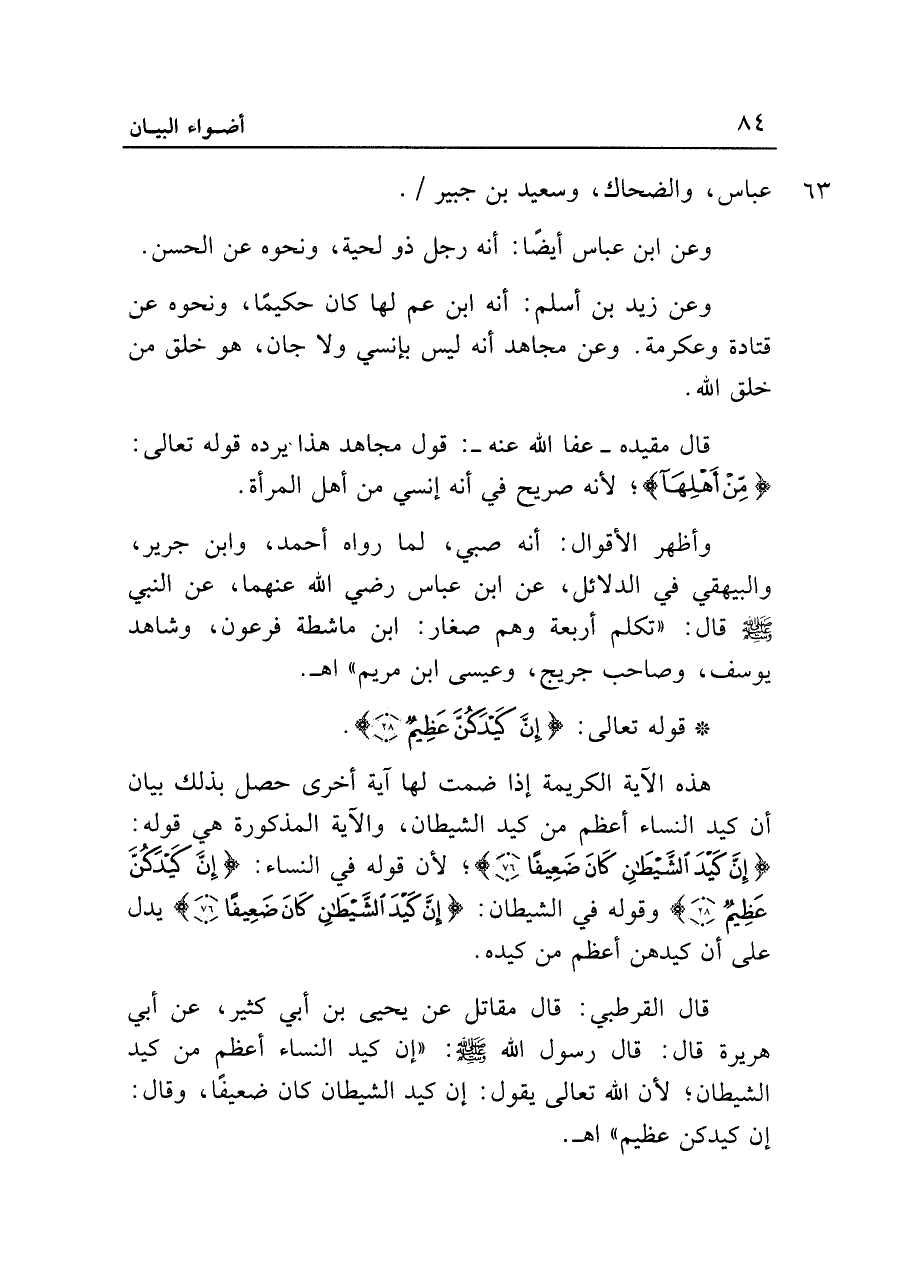 ٨٤ أضـواء البيـان
٦٣ عباس، والضحاك، وسعيد بن جبير / .
وعن ابن عباس أيضًا: أنه رجل ذو لحية، ونحوه عن الحسن.
وعن زيد بن أسلم: أنه ابن عم لها كان حكيمًا، ونحوه عن
قتادة وعكرمة. وعن مجاهد أنه ليس بإنسي ولا جان، هو خلق من
خلق الله.
قال مقيده ـ عفا الله عنه ـ: قول مجاهد هذا يرده قوله تعالى:
﴿مِّنْ أَهْلِهَآ﴾؛ لأنه صريح في أنه إنسي من أهل المرأة.
وأظهر الأقوال: أنه صبي، لما رواه أحمد، وابن جرير،
والبيهقي في الدلائل، عن ابن عباس رضي الله عنهما، عن النبي
ﷺ قال: «تكلم أربعة وهم صغار: ابن ماشطة فرعون، وشاهد
يوسف، وصاحب جريج، وعيسى ابن مريم» اهـ.
* قوله تعالى: ﴿إِنَّ كَيْدَكُنَّ عَظِيمٌ ٢٨﴾.
هذه الآية الكريمة إذا ضمت لها آية أخرى حصل بذلك بيان
أن كيد النساء أعظم من كيد الشيطان، والآية المذكورة هي قوله:
﴿إِنَّ كَيْدَ ٱلشَّيْطَٰنِ كَانَ ضَعِيفًا ٧٦﴾؛ لأن قوله في النساء: ﴿إِنَّ كَيْدَكُنَّ
عَظِيمٌ ٢٨﴾ وقوله في الشيطان: ﴿إِنَّ كَيْدَ ٱلشَّيْطَٰنِ كَانَ ضَعِيفًا ٧٦﴾ يدل
على أن كيدهن أعظم من كيده.
قال القرطبي: قال مقاتل عن يحيى بن أبي كثير، عن أبي
هريرة قال: قال رسول الله ﷺ: «إن كيد النساء أعظم من كيد
الشيطان؛ لأن الله تعالى يقول: إن كيد الشيطان كان ضعيفًا، وقال:
إن كيدكن عظيم» اهـ.